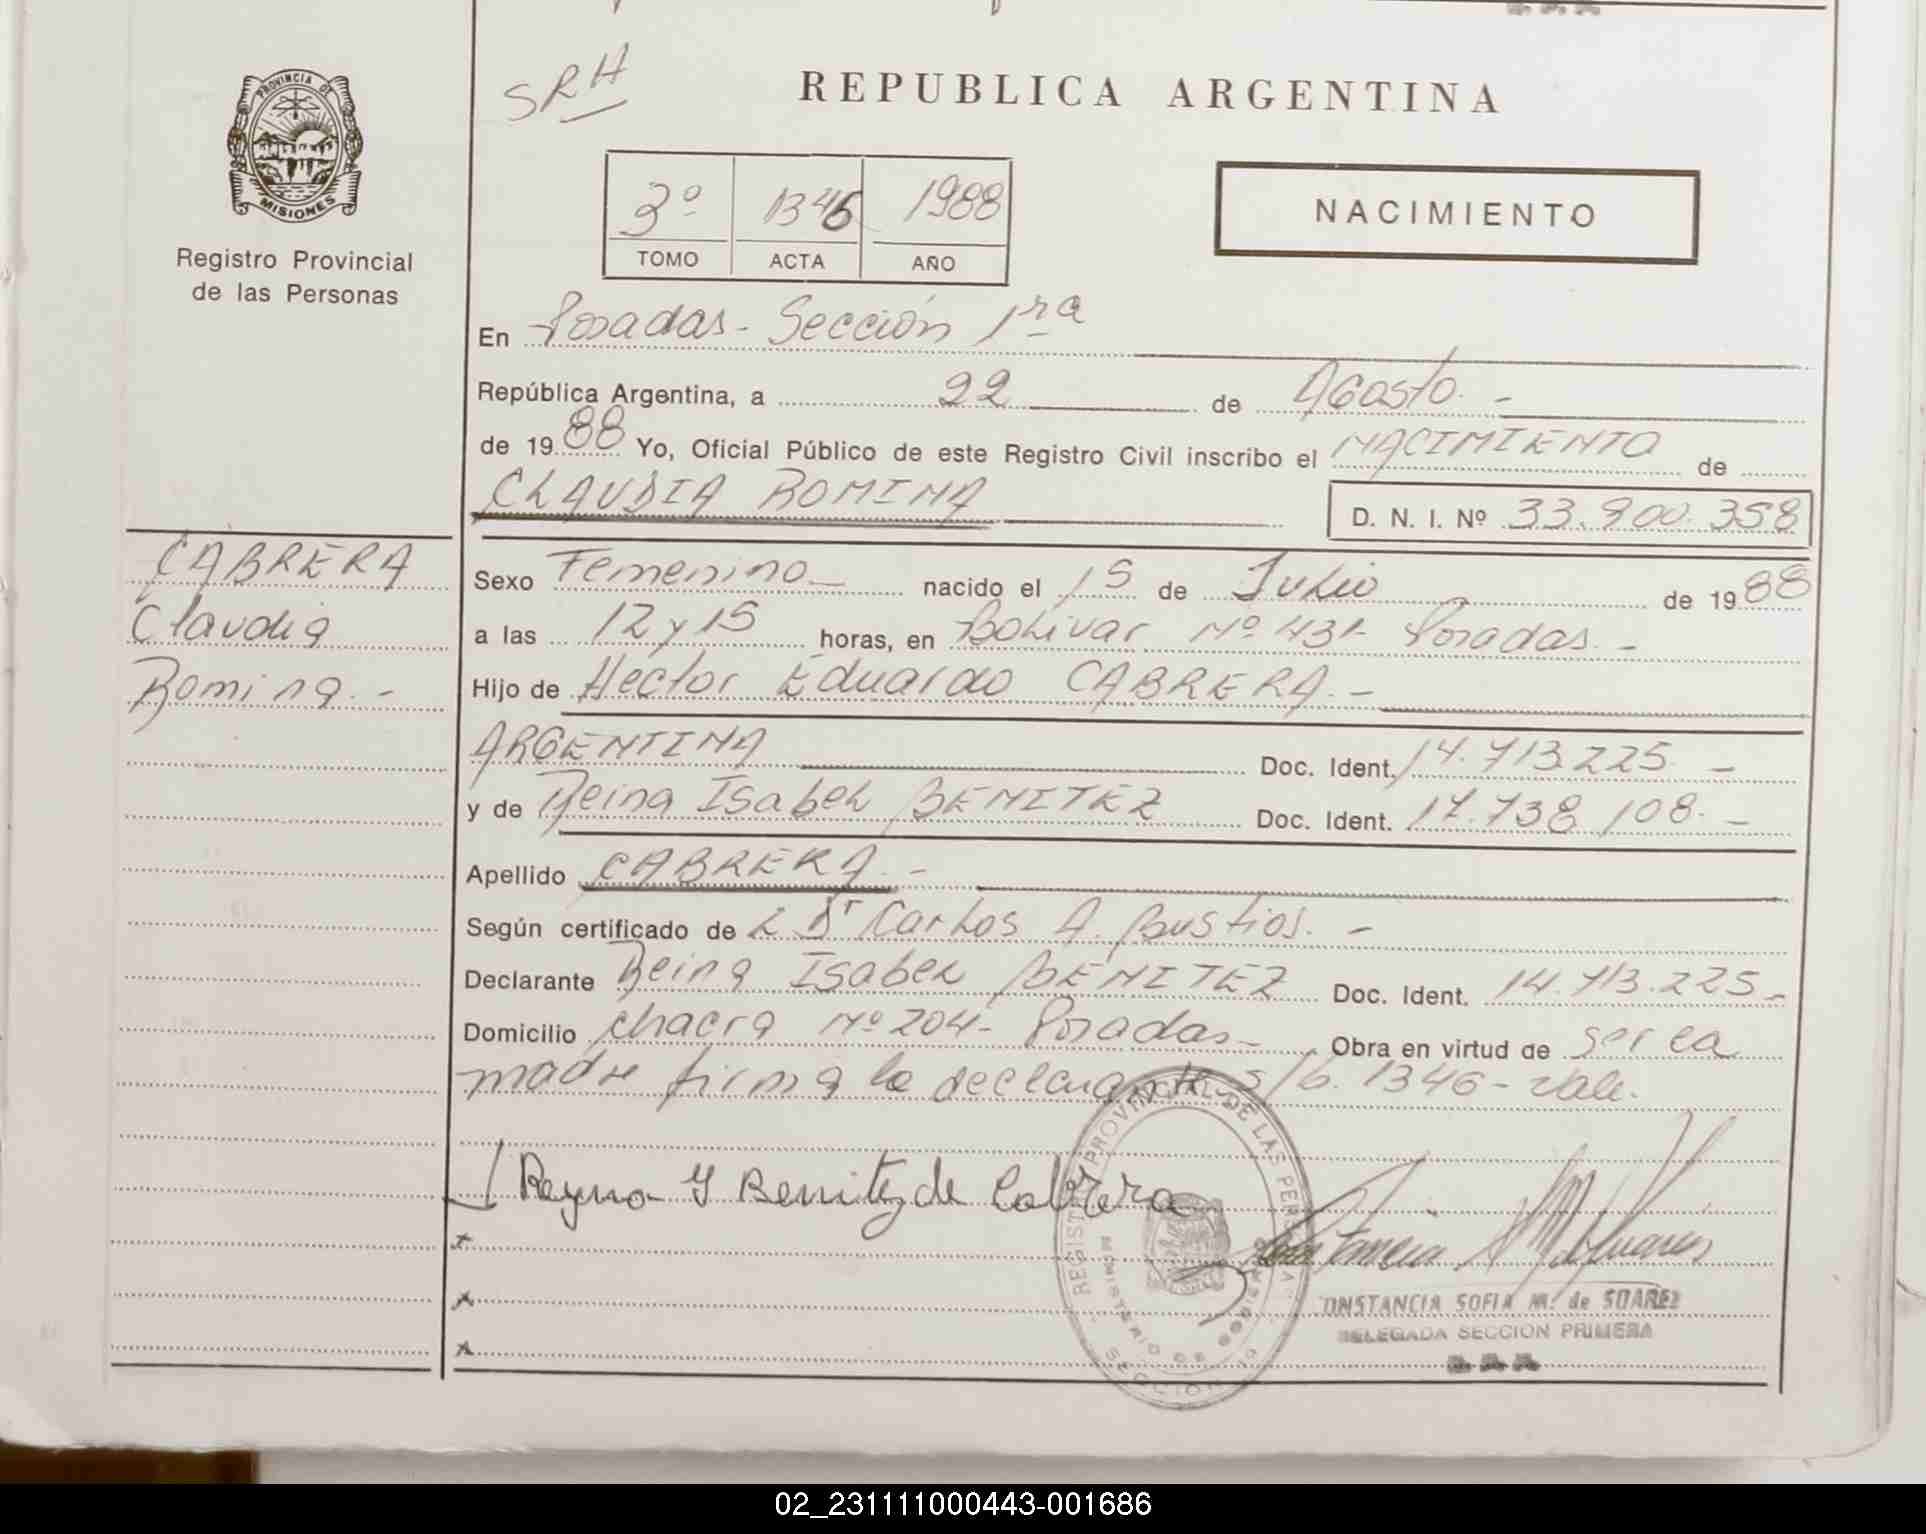 SRH
REPUBLICA ARGENTINA
PROVINCIA DE
MISIONES
Registro Provincial
de las Personas
3º 1346 1988
TOMO ACTA AÑO
NACIMIENTO
En Posadas - Sección 1ra
República Argentina, a 22 de Agosto. -
de 1988 Yo, Oficial Público de este Registro Civil inscribo el NACIMIENTO de
CLAUDIA ROMINA
D. N. I. Nº 33.900.358
CABRERA
Claudia
Romina. -
Sexo Femenino nacido el 15 de Julio de 1988
a las 12 y 15 horas, en Bolivar Nº 431- Posadas. -
Hijo de Hector Eduardo CABRERA. -
ARGENTINA Doc. Ident. 14.713.225. -
y de Reina Isabel BENITEZ Doc. Ident. 17.738.108. -
Apellido CABRERA. -
Según certificado de L Dr Carlos A. Bustios. -
Declarante Reina Isabel BENITEZ Doc. Ident. 14.713.225. -
Domicilio Chacra Nº 204- Posadas - Obra en virtud de ser la
madre firma la declarante s/b. 1346 - vale.
Reyna Y Benitez de Cabrera
REGISTRO PROVINCIAL DE LAS PERSONAS
MINISTERIO DE GOBIERNO
SECCION 1a
CONSTANCIA SOFIA M. de SUAREZ
DELEGADA SECCION PRIMERA
02_231111000443-001686